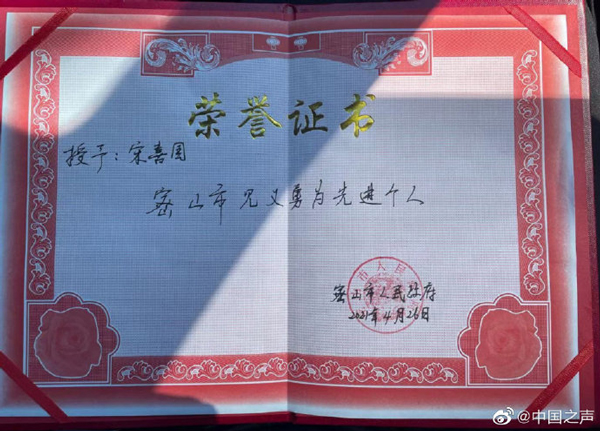 荣誉证书
授予：宋喜国
密山市见义勇为先进个人
密山市人民政府
2021年4月26日
@中国之声